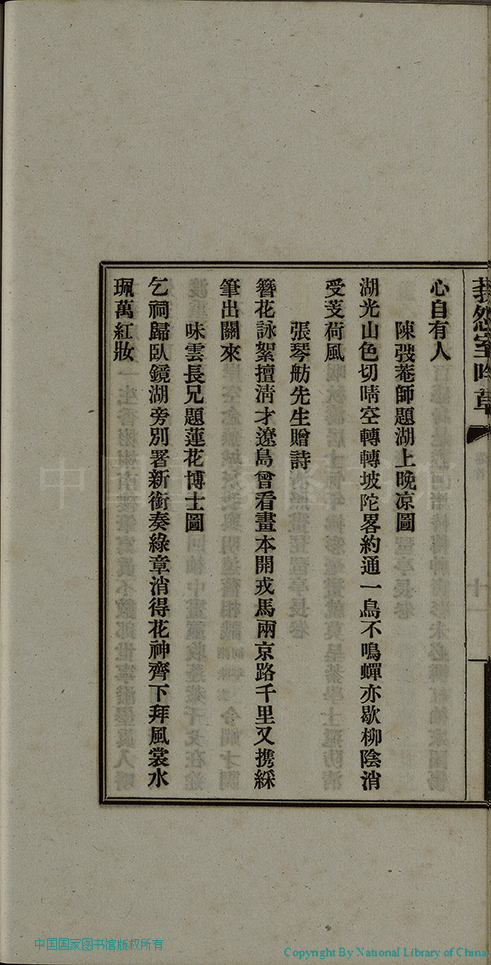 心自有人
陳弢菴師題湖上晚凉圖
湖光山色切晴空轉轉坡陀畧約通一鳥不鳴蟬亦歇柳陰消
受芰荷風
張琴舫先生贈詩
簪花詠絮擅清才遼島曾看畫本開戎馬兩京路千里又携綵
筆出關來
味雲長兄題蓮花博士圖
乞祠歸臥鏡湖旁別署新銜奏綠章消得花神齊下拜風裳水
珮萬紅妝
中国国家图书馆版权所有
Copyright By National Library of China